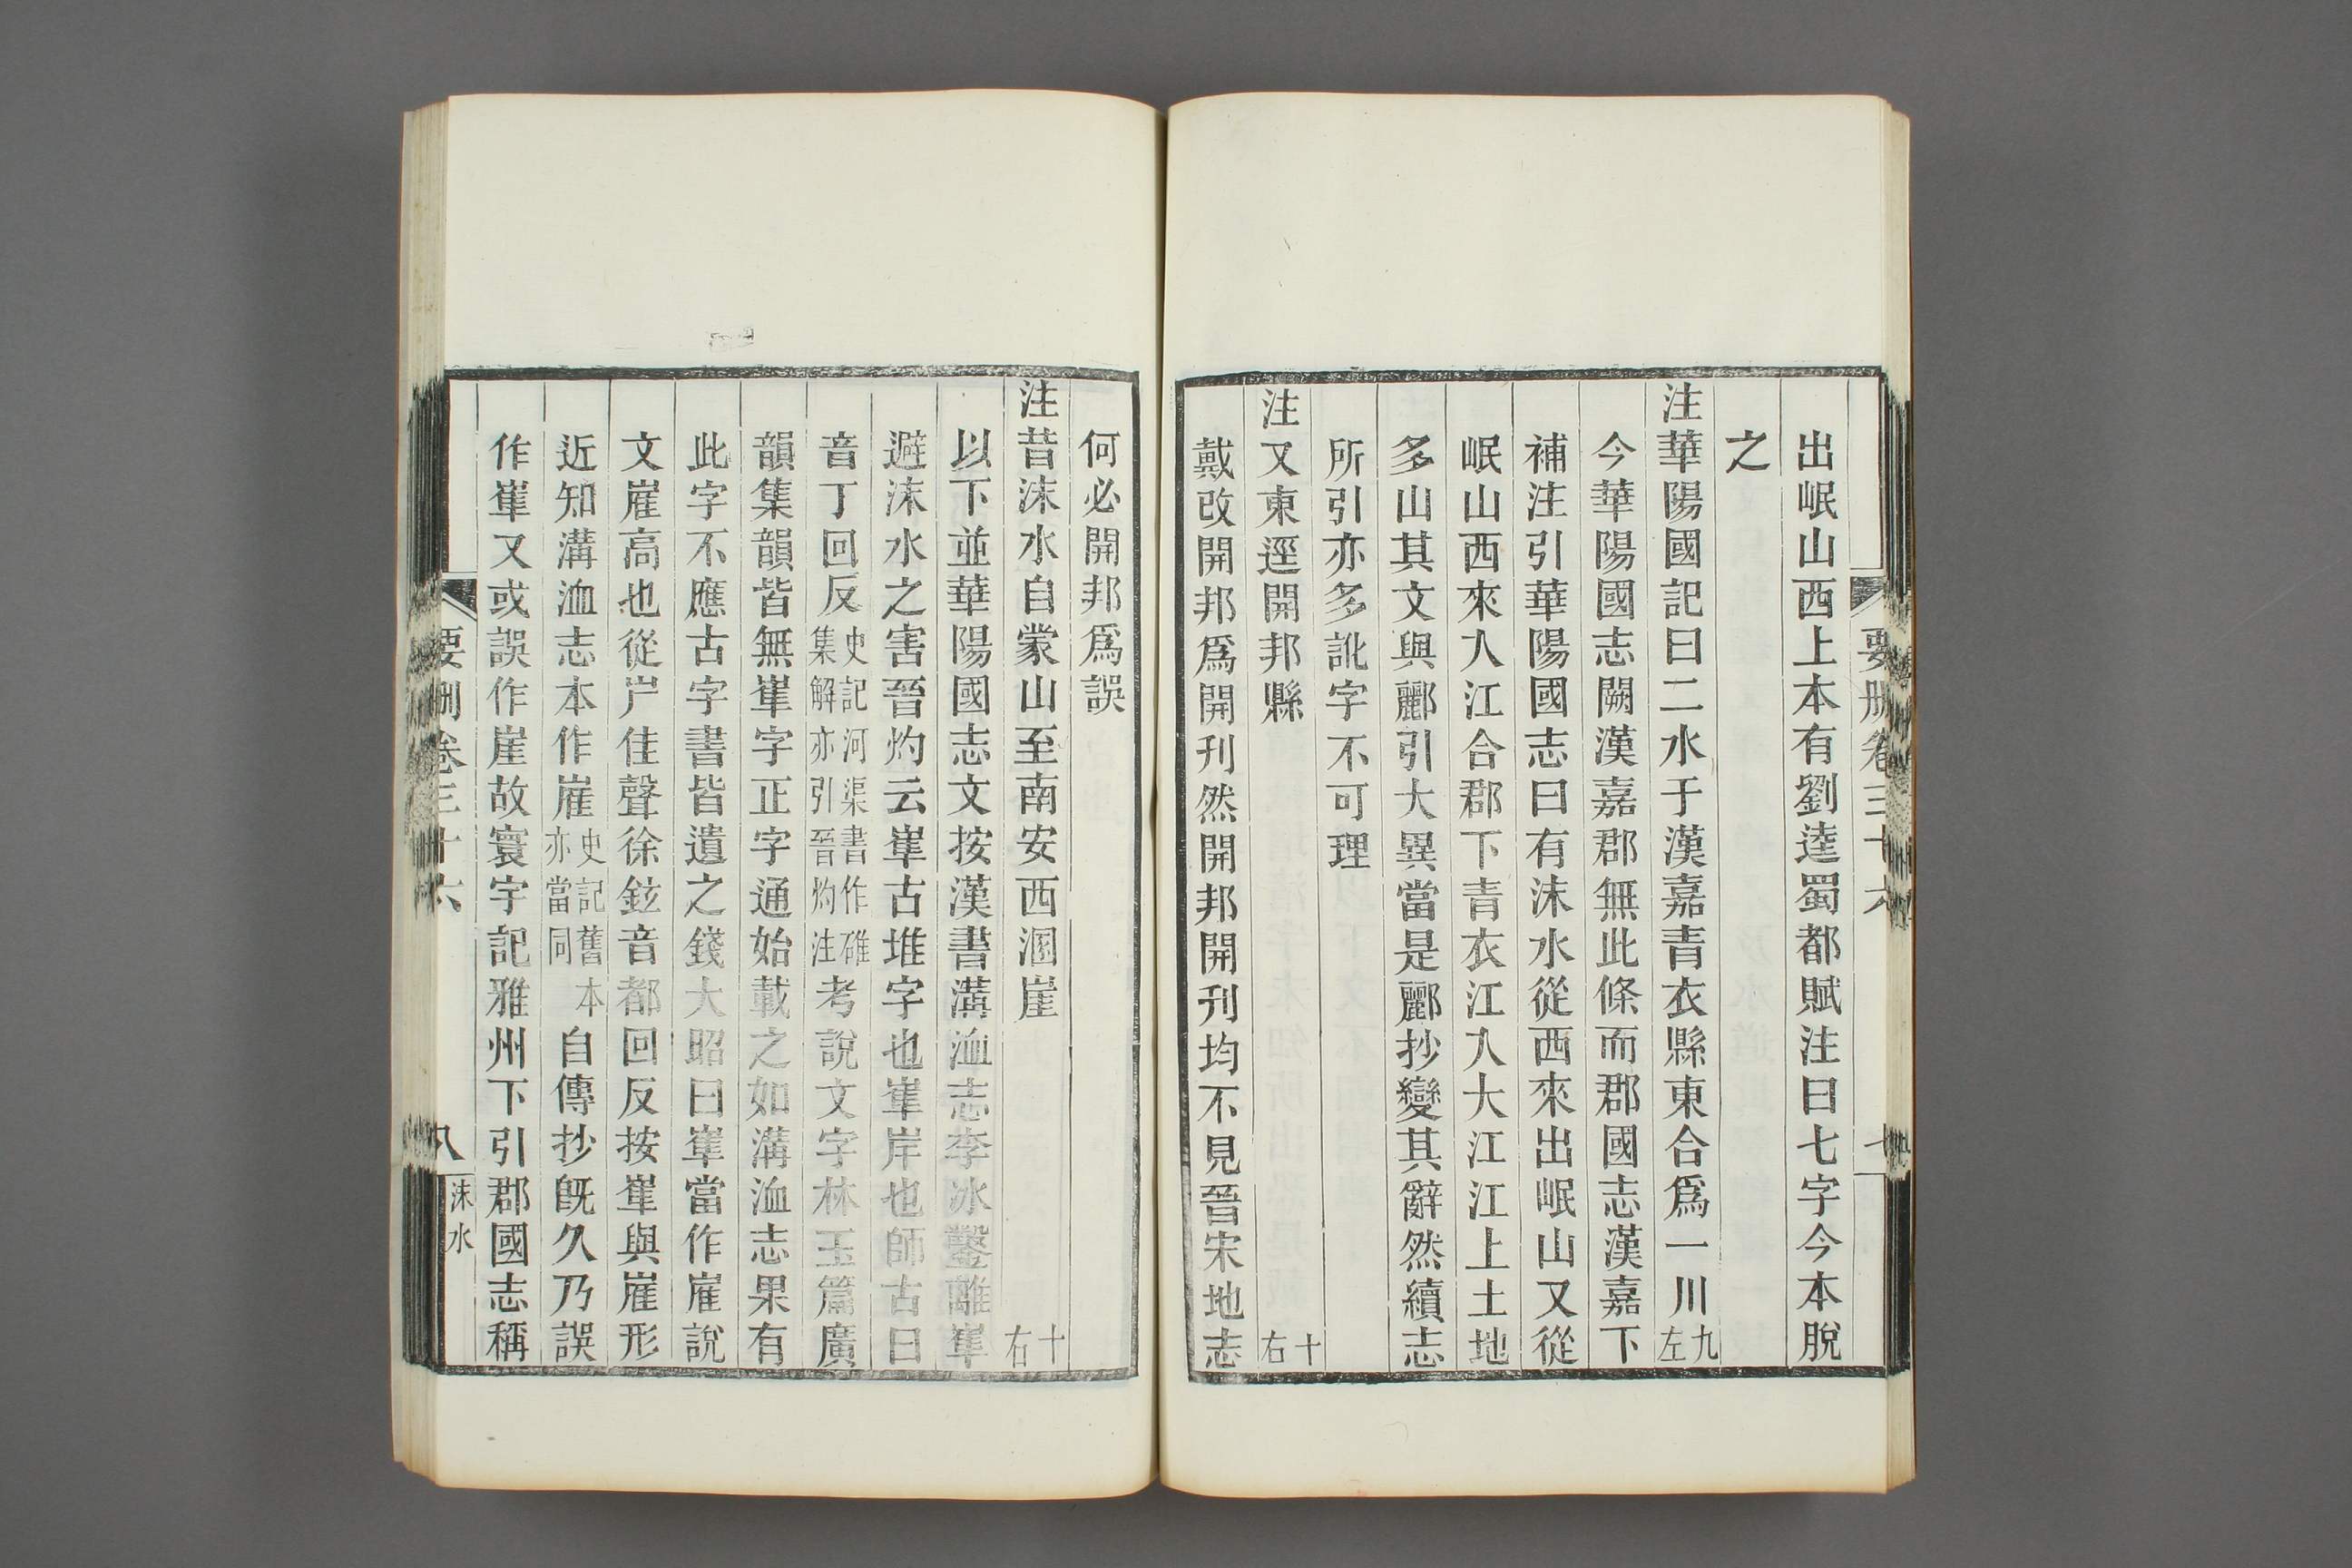 要刪卷三十六
出岷山西上本有劉逵蜀都賦注曰七字今本脫
之
注華陽國記曰二水于漢嘉青衣縣東合爲一川九左
今華陽國志闕漢嘉郡無此條而郡國志漢嘉下
補注引華陽國志曰有沫水從西來出岷山又從
岷山西來入江合郡下青衣江入大江江上土地
多山其文與酈引大異當是酈抄變其辭然續志
所引亦多訛字不可理
注又東逕開邦縣十右
戴改開邦爲開刋然開邦開刋均不見晉宋地志
何必開邦爲誤
注昔沫水自蒙山至南安西溷崖十右
以下並華陽國志文按漢書溝洫志李冰鑿離𡹐
避沫水之害晉灼云𡹐古堆字也𡹐岸也師古曰
音丁回反史記河渠書作碓集解亦引晉灼注考說文字林玉篇廣
韻集韻皆無𡹐字正字通始載之如溝洫志果有
此字不應古字書皆遺之錢大昭曰𡹐當作嶊說
文嶊高也從屵隹聲徐鉉音都回反按𡹐與嶊形
近知溝洫志本作嶊史記舊本亦當同自傳抄旣久乃誤
作𡹐又或誤作崖故寰宇記雅州下引郡國志稱
要刪卷三十六
八
沫水